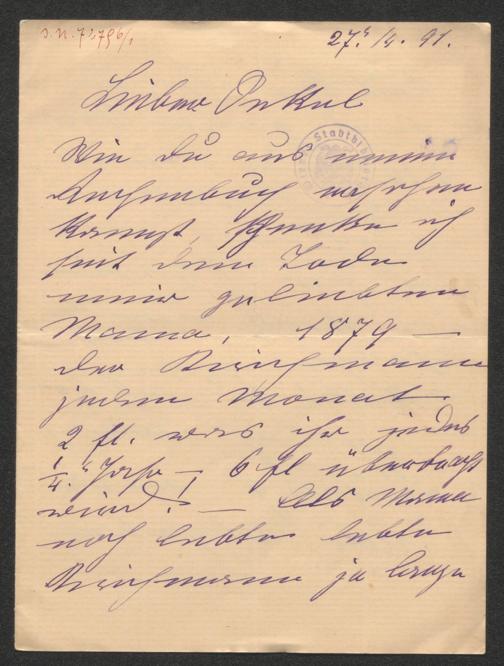 J.N. 74796/1
27. /4. 91.
Lieber Onkel
Stadtbibl
Wie du aus meinem
Rechenbuch ersehen
kannst, schenke ich
seit dem Tode
meiner geliebten
Mama, 1879 –
der Reichmann
jeden Monat
2 fl. was ihr jedes
1/4. Jahr – 6 fl überbracht
wird! – Als Mama
noch lebte lebte
Reichmann ja lange